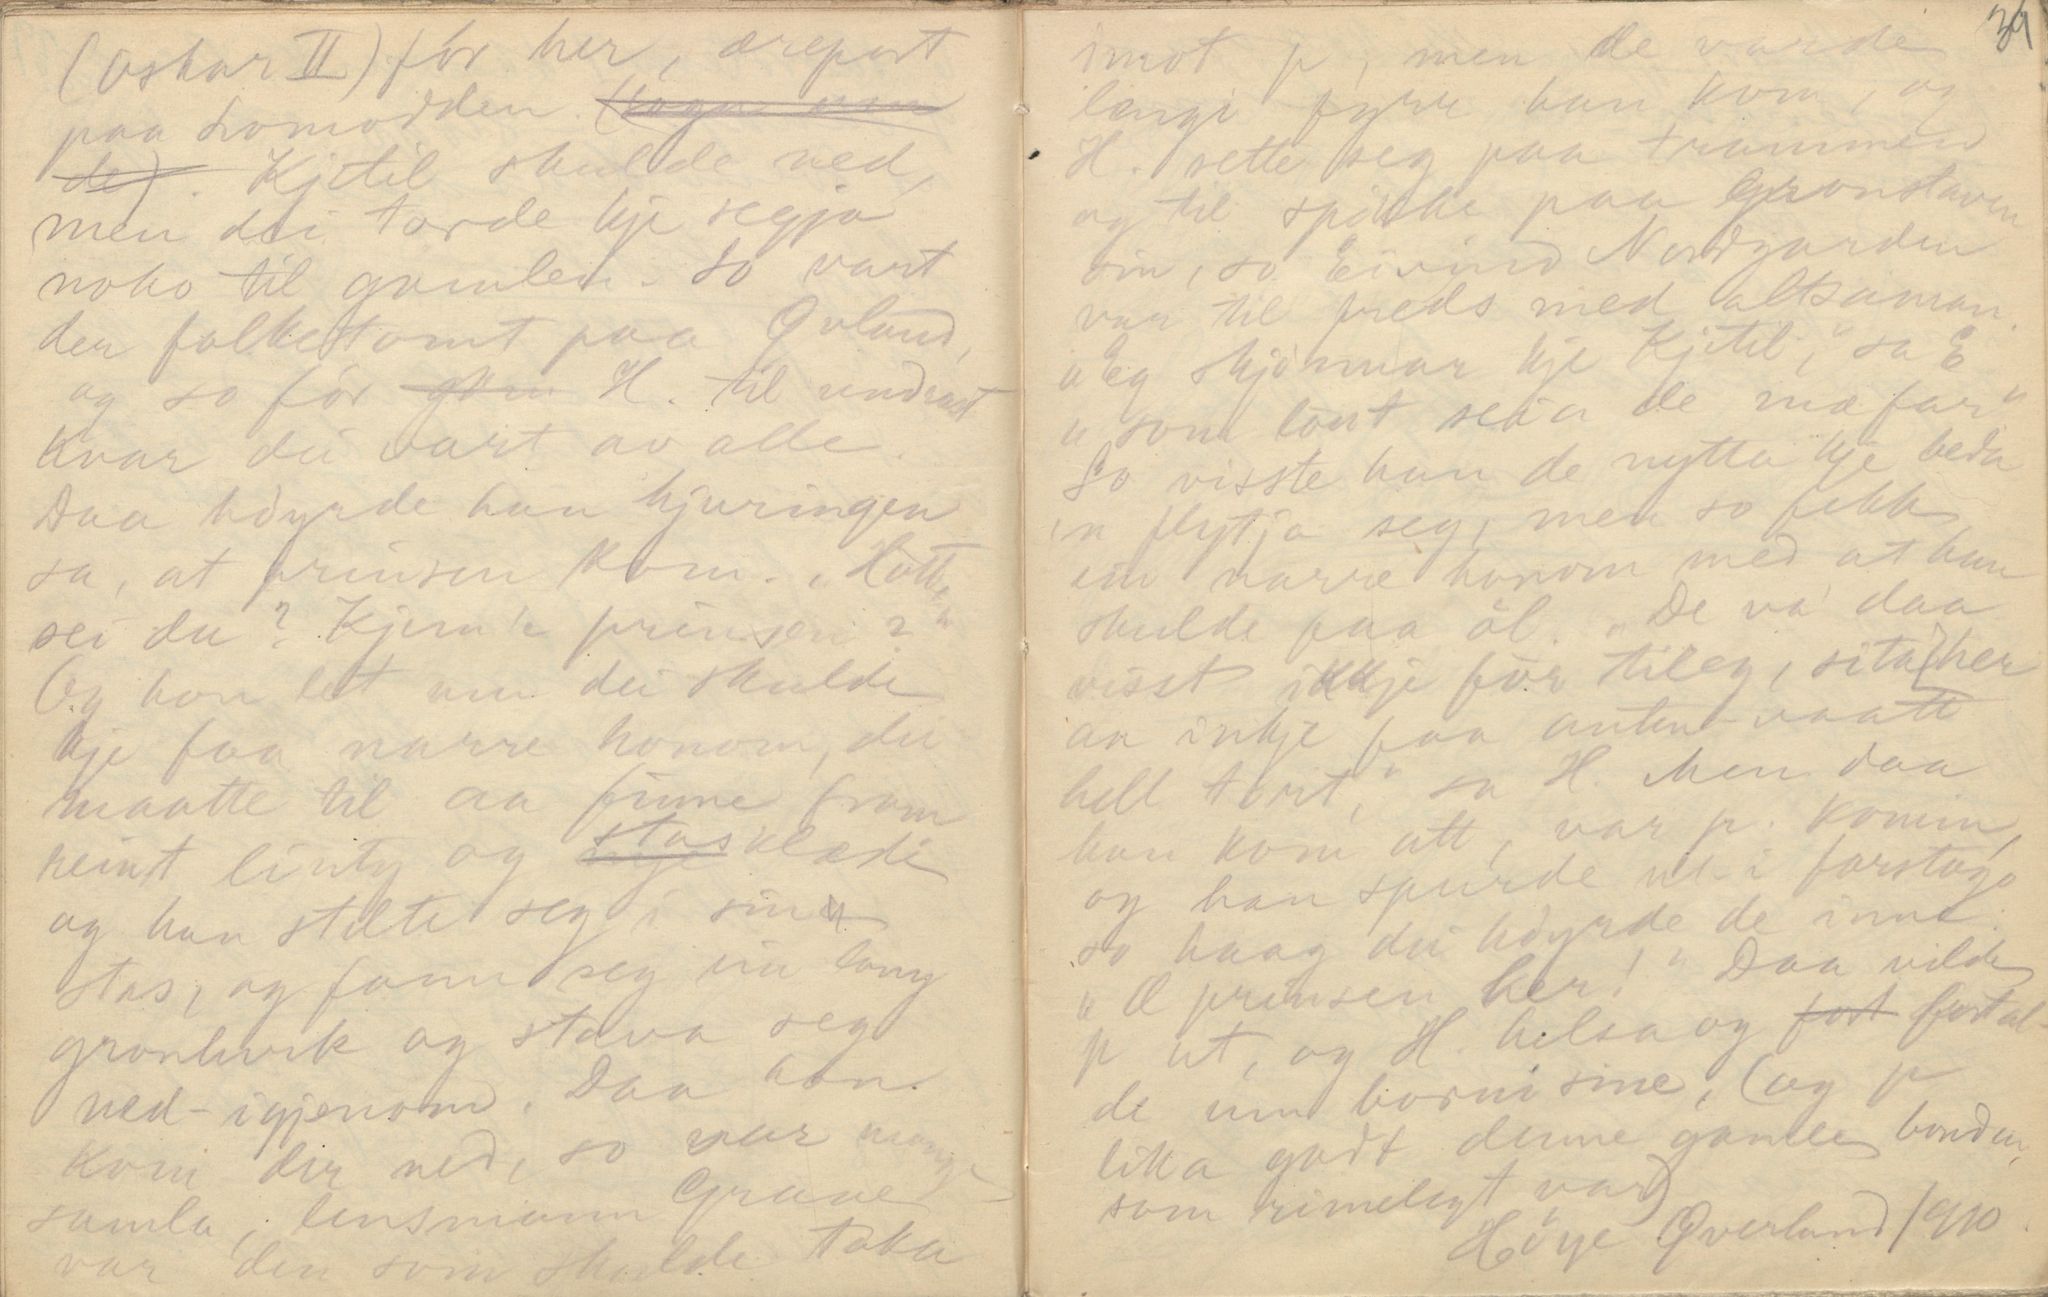 (Oskar II) fór her, æreport
paa Lomodden. (
de). Kjetil skulde ned,
men dei torde kje segja
noko til gamlen. So vart
der folketomt paa Qvland,
og so fór H. til undrast
kvar dei vart av alle.
Daa høyrde han hjuringen
sa, at prinsen kom. "Hott
sei du? Kjem 'n prinsen?"
Og han let um dei skulde
kje faa narre honom, dei
maatte til aa finne fram
reint linty og stasklædi
og han stelte seg i sin
stas, og fann seg ein lang
gronkvik og stava seg
ned-igjenom. Daa han
kom der ned, so var mange
samla, lensmann Graave
var den som skulde taka
39
imot p, men de varde
længi fyrr han kom, og
H. sette seg paa trammen
og til spikke paa gronstaven
sin, so Eivind Nordgarden
var til freds med altsaman.
"Eg skjønnar kje Kjetil," sa E
"som lout seia de mæ far"
So visste han de nytta kje beda
'n flytja seg, men so fekk
ein narre honom med at han
skulde faa øl. "De va' daa
visst ikkje för tileg, sita her
aa inkje faa anten vaatt
hell tort," sa H. Men daa
han kom att, var p. komin,
og han spurde ut i forstogo
so haag dei høyrde de inne.
"Æ prinsen her!" Daa vilde
p ut, og H. helsa og fost fortal-
de um borni sine, (og p
lika godt denne gamle bonden,
som rimelegt var)
Høye Qverland /1910.